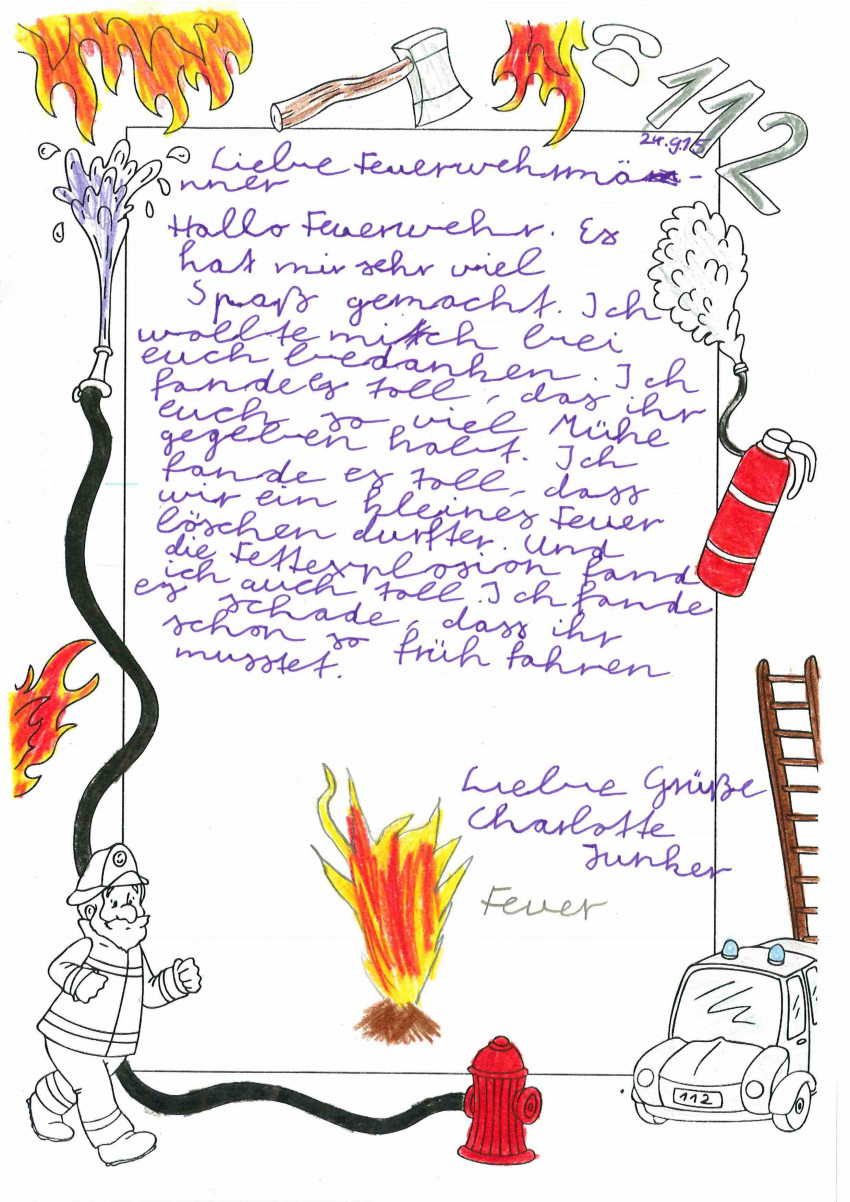 112
24.9.15
Liebe Feuerwehrmä-
nner
Hallo Feuerwehr. Es
hat mir sehr viel
Spaß gemacht. Ich
wollte mich bei
euch bedanken. Ich
fande es toll, das ihr
euch so viel Mühe
gegeben habt. Ich
fande es toll, dass
wir ein kleines Feuer
löschen durfter. Und
die Fettexplosion fand
ich auch toll. Ich fande
es schade, dass ihr
schon so früh fahren
musstet.
Liebe Grüße
Charlotte
Junker
Feuer
112